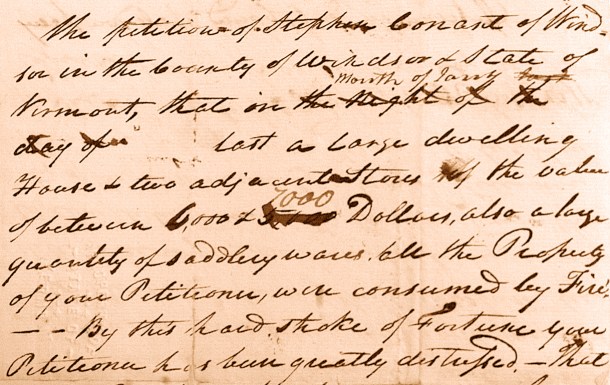 The petition of Stephen Conant of Wind-
sor in the County of Windsor & State of
Month of Jany last
Virmont, that in the Night of the
day of last a Large dwelling
House & two adjacent Stores of the value
7000
of between 6,000 & Dollars, also a large
quantity of saddlery wares. all the Property
of your Petitioner, were consumed by Fire
-- By this hard stroke of Fortune your
Petitioner has been greatly distressed. - That